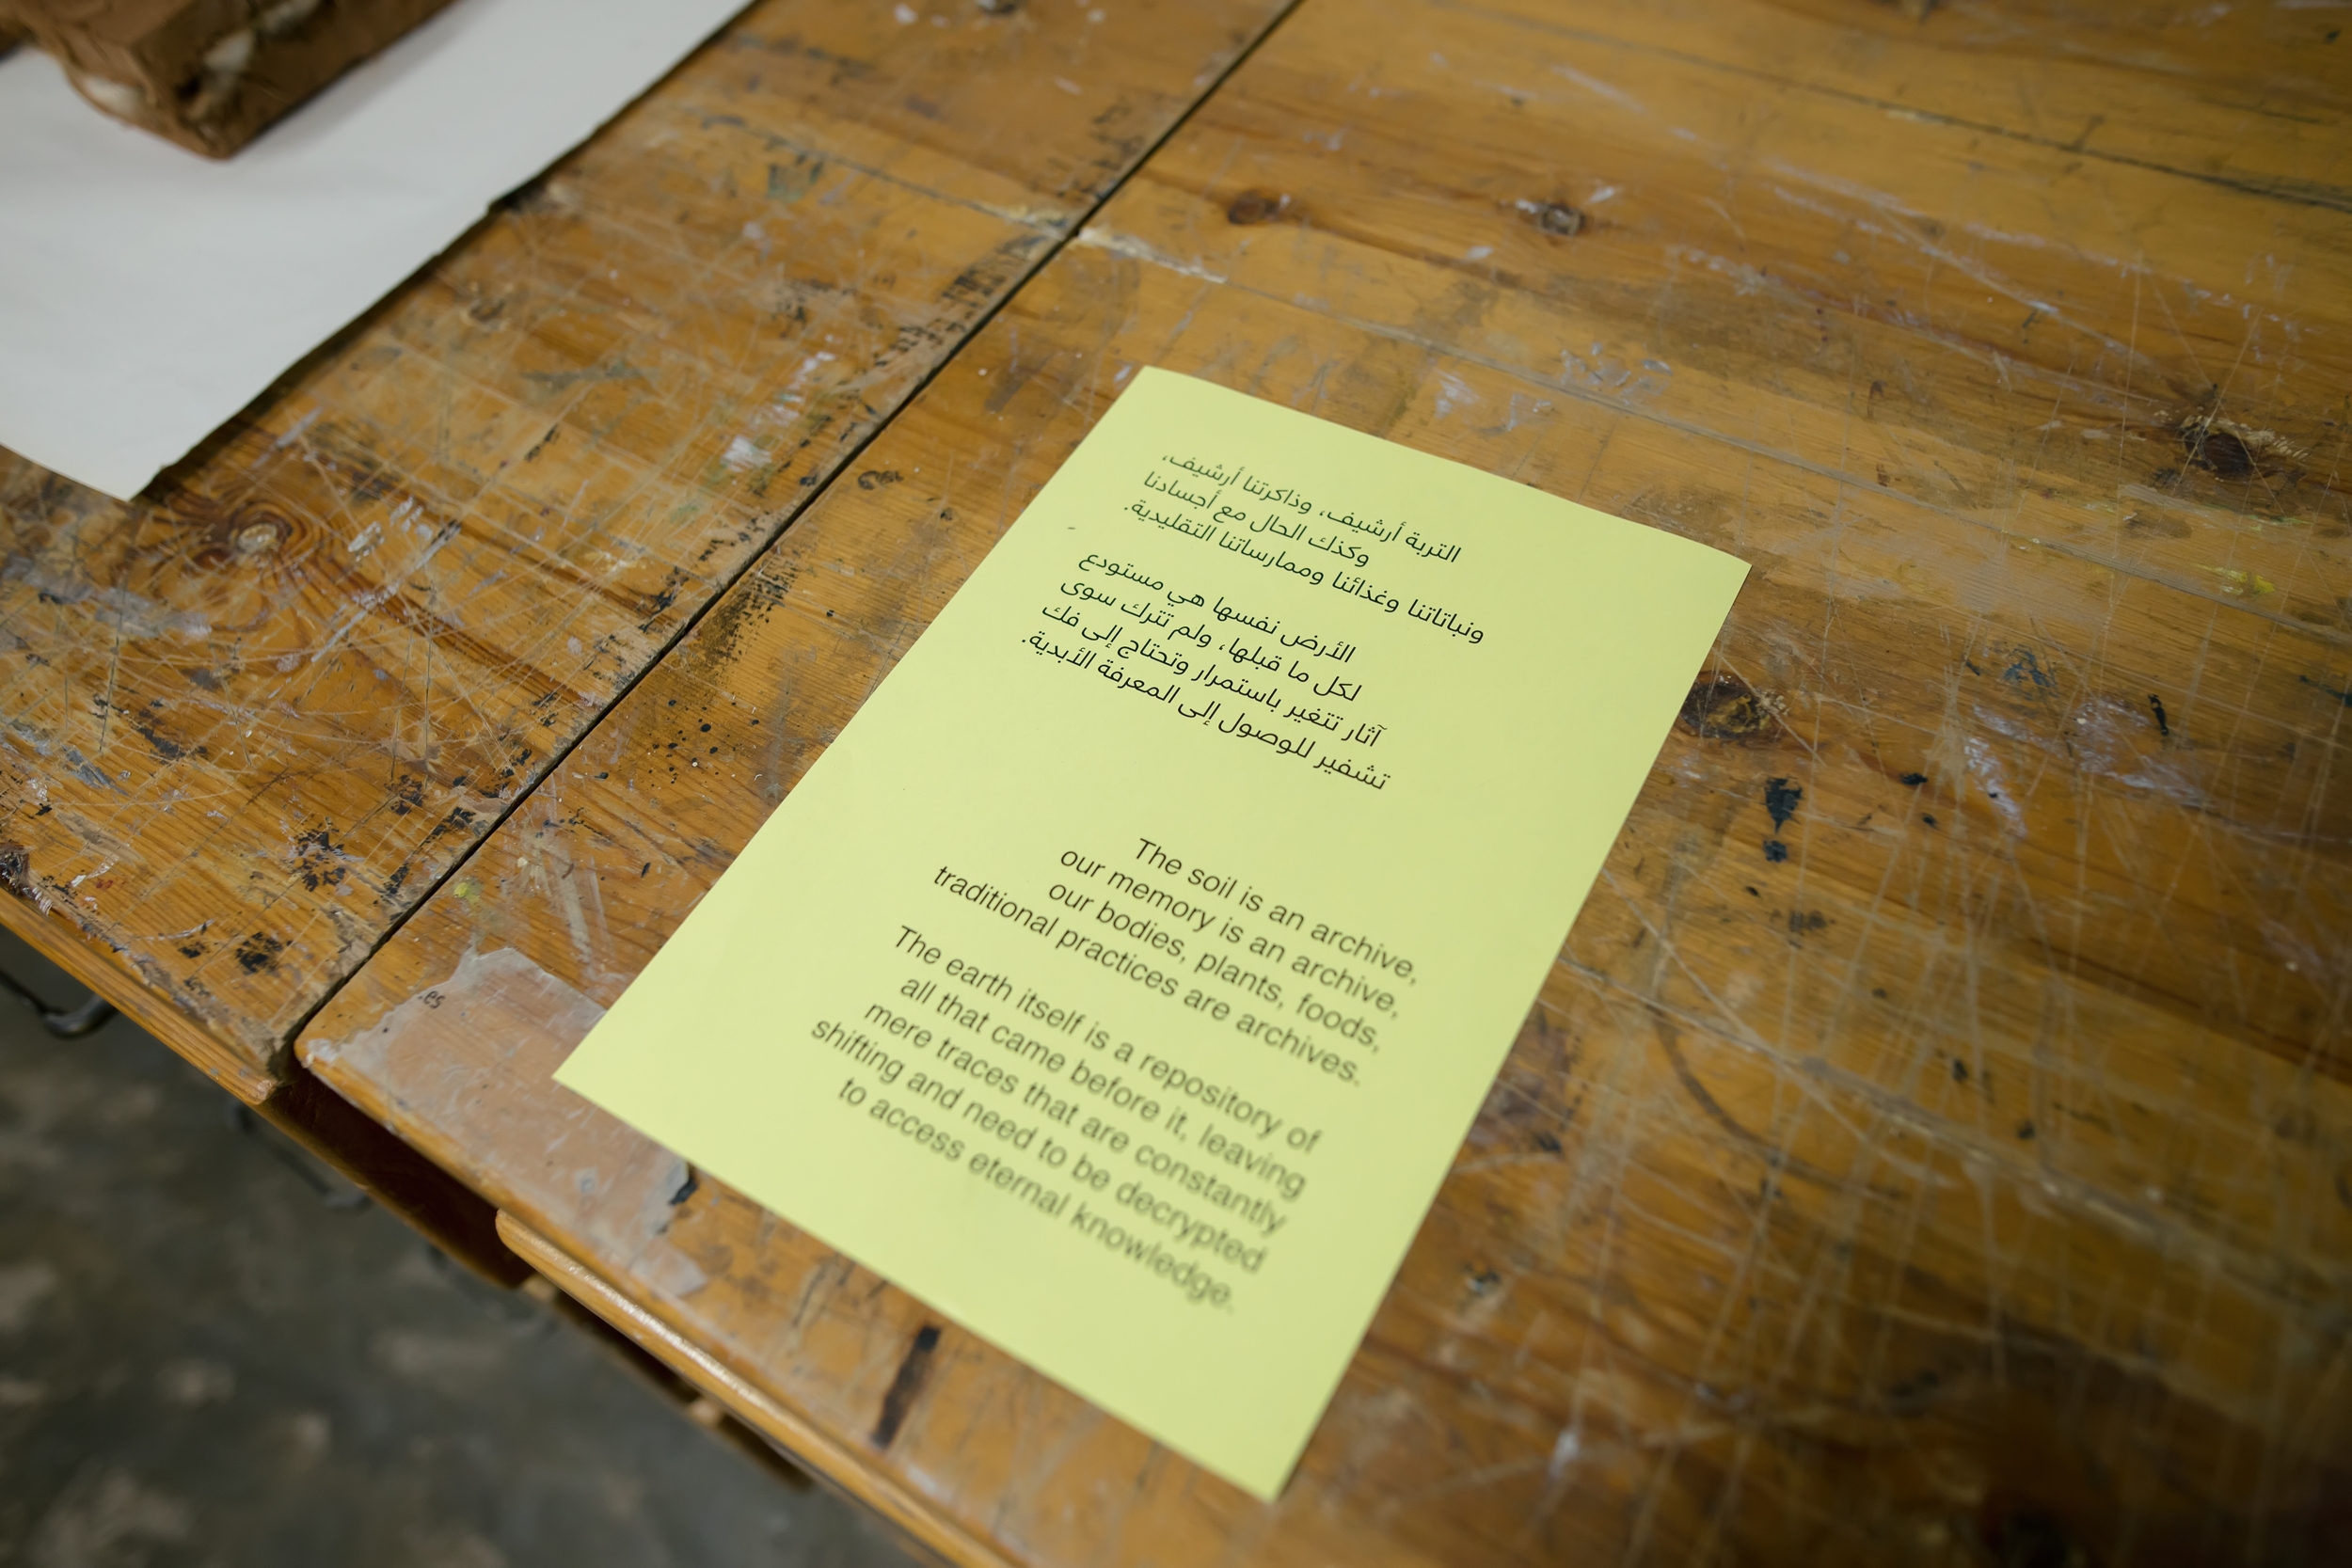 التربة أرشيف، وذاكرتنا أرشيف،
وكذلك الحال مع أجسادنا
ونباتاتنا وغذائنا وممارساتنا التقليدية.
الأرض نفسها هي مستودع
لكل ما قبلها، ولم تترك سوى
آثار تتغير باستمرار وتحتاج إلى فك
تشفير للوصول إلى المعرفة الأبدية.
The soil is an archive,
our memory is an archive,
our bodies, plants, foods,
traditional practices are archives.
The earth itself is a repository of
all that came before it, leaving
mere traces that are constantly
shifting and need to be decrypted
to access eternal knowledge.
.es